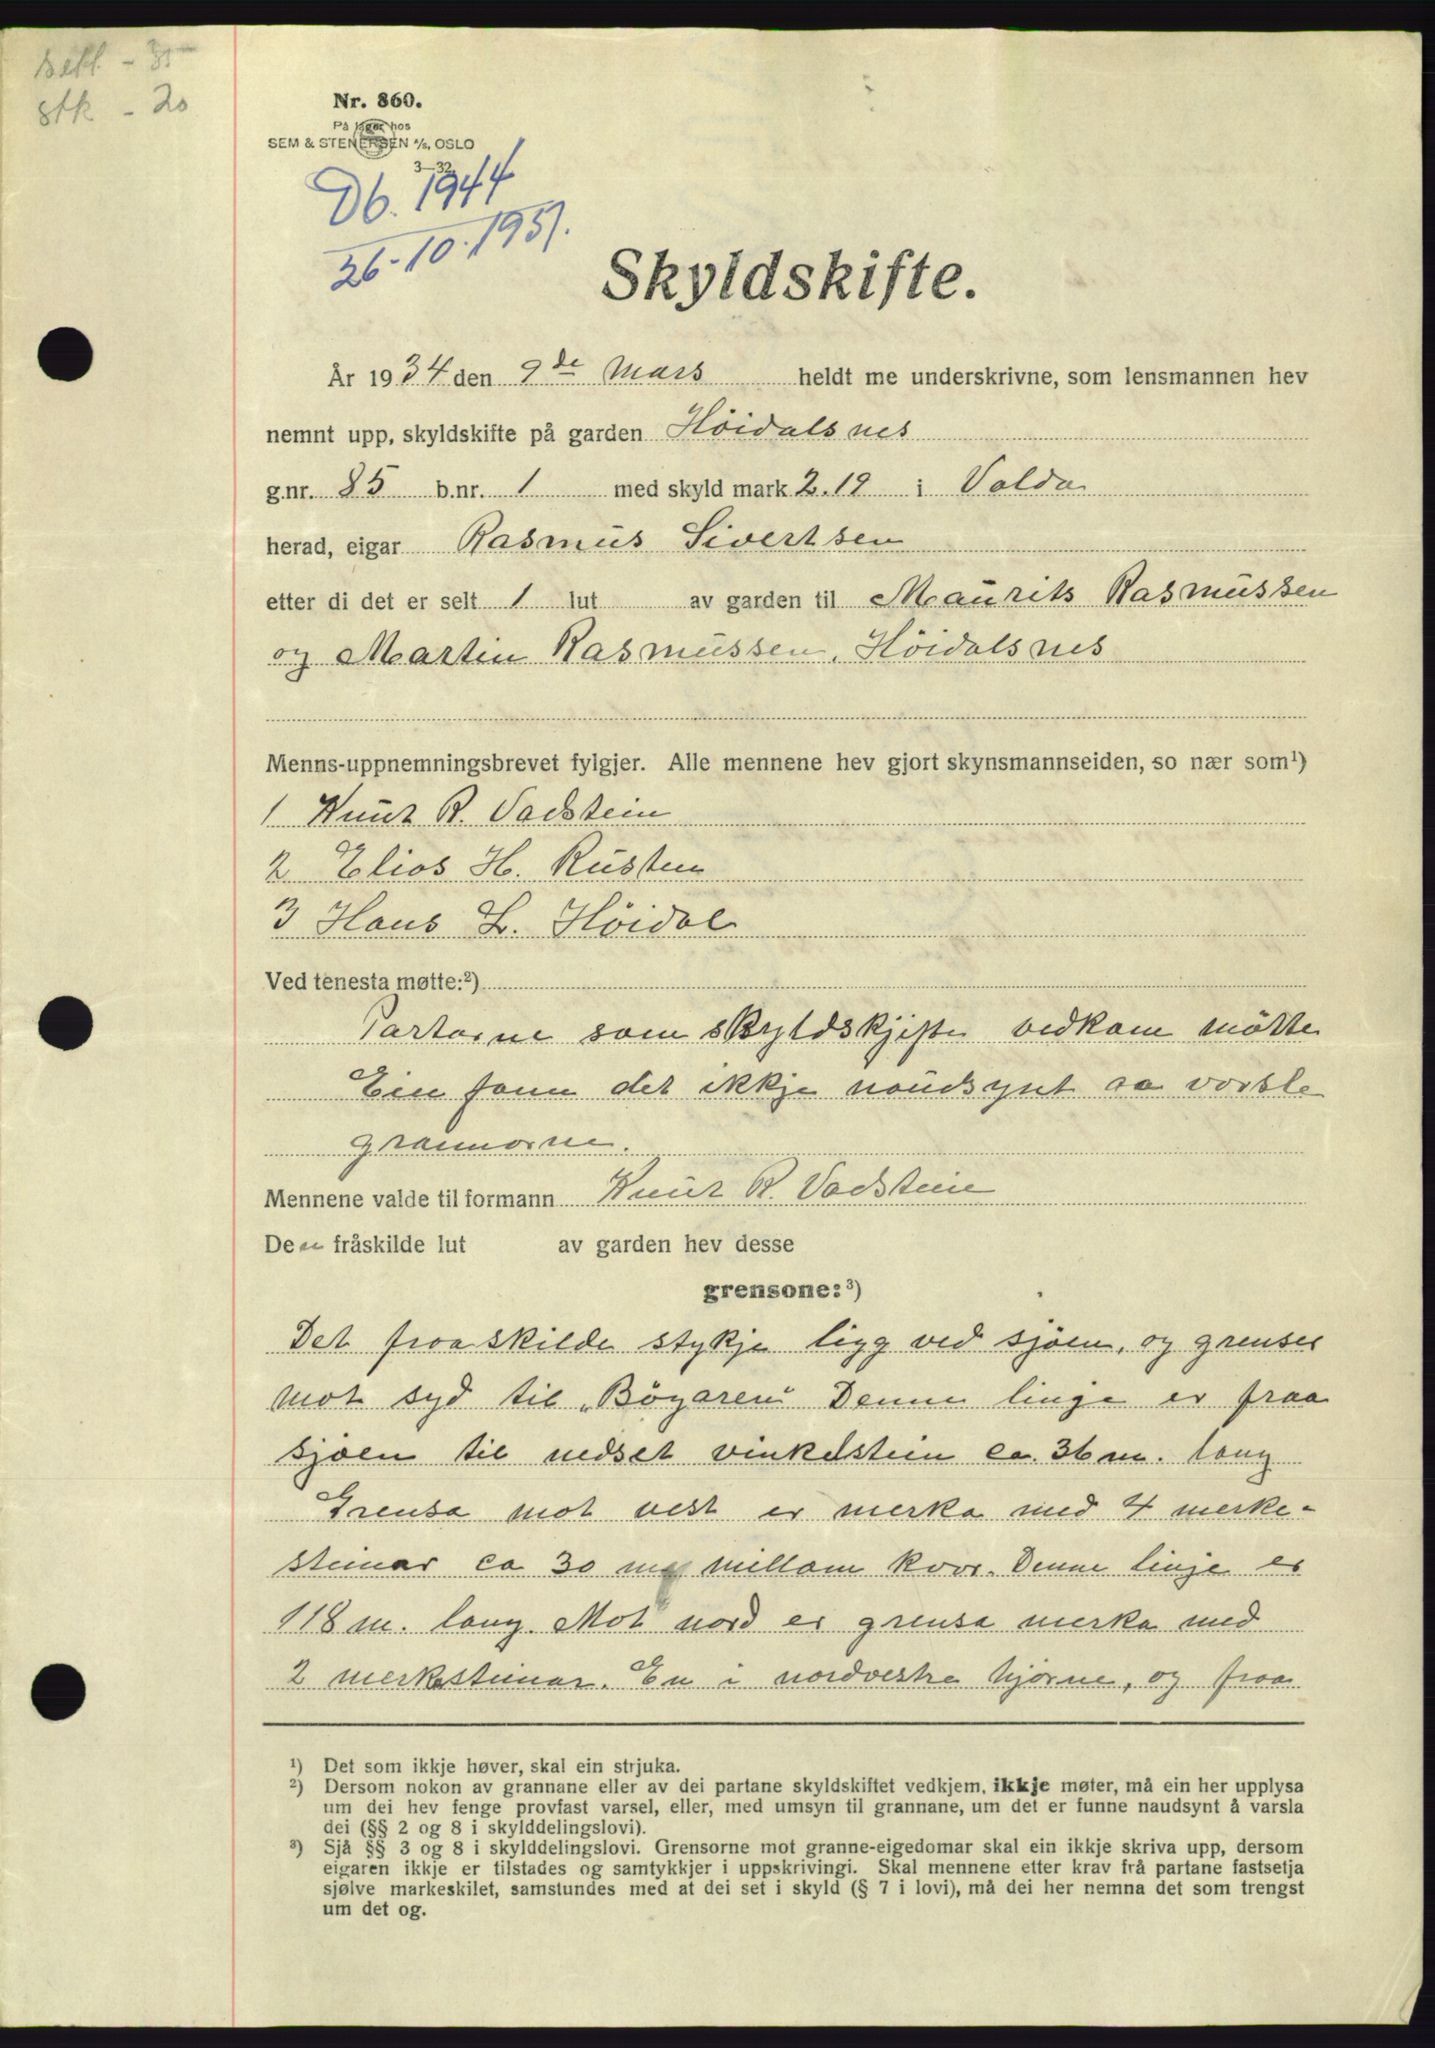 sett. - 35
stk - 20
Nr. 860.
På lager hos
SEM & STENERSEN A/S, OSLO
3—32.
Db. 1944
26-10-1937.
Skyldskifte.
År 1934 den 9de Mars heldt me underskrivne, som lensmannen hev
nemnt upp, skyldskifte på garden Höidalsnes
g.nr. 85 b.nr. 1 med skyld mark 2.19 i Volda
herad, eigar Rasmus Sivertsen
etter di det er selt 1 lut av garden til Maurits Rasmussen
og Martin Rasmussen, Höidalsnes
Menns-uppnemningsbrevet fylgjer. Alle mennene hev gjort skynsmannseiden, so nær som¹)
1 Knut R. Vadstein
2 Elias H. Rusten
3 Hans L. Höidal
Ved tenesta møtte:²)
Partarne som skyldskjifte vedkom mötte
Ein fann det ikkje naudsynt aa varsle
grannarne.
Mennene valde til formann Knut R. Vadstein
Den fråskilde lut av garden hev desse
grensone:³)
Det fraaskilde stykje ligg ved sjöen, og grenser
mot syd til „Böyaren" Denne linje er fraa
sjöen til nedset vinkelstein ca. 36 m. lang
Grensa mot vest er merka med 4 merke-
steinar ca 30 m millom kvar. Denne linje er
118 m. lang. Mot nord er grensa merka med
2 merkesteinar. En i nordvestre hjörne, og fraa
¹) Det som ikkje høver, skal ein strjuka.
²) Dersom nokon av grannane eller av dei partane skyldskiftet vedkjem, ikkje møter, må ein her upplysa
um dei hev fenge provfast varsel, eller, med umsyn til grannane, um det er funne naudsynt å varsla
dei (§§ 2 og 8 i skylddelingslovi).
³) Sjå §§ 3 og 8 i skylddelingslovi. Grensorne mot granne-eigedomar skal ein ikkje skriva upp, dersom
eigaren ikkje er tilstades og samtykkjer i uppskrivingi. Skal mennene etter krav frå partane fastsetja
sjølve markeskilet, samstundes med at dei set i skyld (§ 7 i lovi), må dei her nemna det som trengst
um det og.